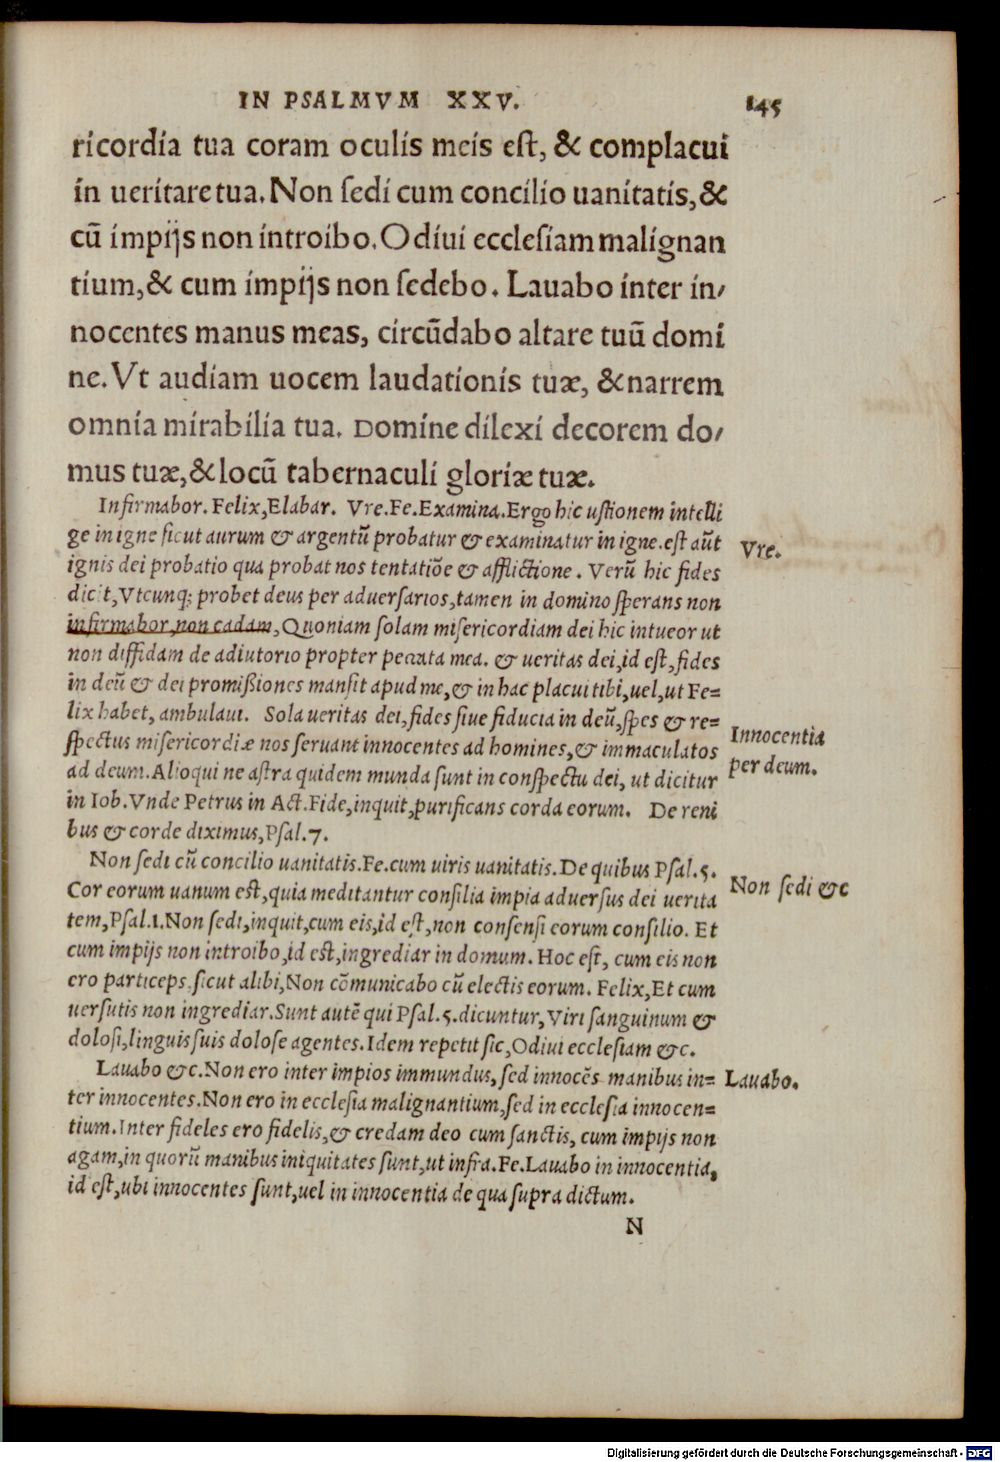 IN PSALMVM XXV. 145
ricordia tua coram oculis meis est, & complacui
in ueritare tua. Non sedi cum concilio uanitatis, &
cū impijs non introibo. Odiui ecclesiam malignan
tium, & cum impijs non sedebo. Lauabo inter in/
nocentes manus meas, circūdabo altare tuū domi
ne. Vt audiam uocem laudationis tuæ, & narrem
omnia mirabilia tua. Domine dilexi decorem do/
mus tuæ, & locū tabernaculi gloriæ tuæ.
Infirmabor. Felix, Elabar. Vre. Fe. Examina. Ergo hic ustionem intelli
ge in igne sicut aurum & argentū probatur & examinatur in igne. est aūt
Vre.
ignis dei probatio qua probat nos tentatiōe & afflictione. Verū hic fides
dicit, Vtcunq; probet deus per aduersarios, tamen in domino sperans non
infirmabor, non cadam, Quoniam solam misericordiam dei hic intueor ut
non diffidam de adiutorio propter peccata mea. & ueritas dei, id est, fides
in deū & dei promißiones mansit apud me, & in hac placui tibi, uel, ut Fe=
lix habet, ambulaui. Sola ueritas dei, fides siue fiducia in deū, spes & re=
spectus misericordiæ nos seruant innocentes ad homines, & immaculatos
Innocentia
ad deum. Alioqui ne astra quidem munda sunt in conspectu dei, ut dicitur
per deum.
in Iob. Vnde Petrus in Act. Fide, inquit, purificans corda eorum. De reni
bus & corde diximus, Psal. 7.
Non sedi cū concilio uanitatis. Fe. cum uiris uanitatis. De quibus Psal. 5.
Non sedi &c
Cor eorum uanum est, quia meditantur consilia impia aduersus dei uerita
tem, Psal. 1. Non sedi, inquit, cum eis, id est, non consensi eorum consilio. Et
cum impijs non introibo, id est, ingrediar in domum. Hoc est, cum eis non
ero particeps. sicut alibi, Non cōmunicabo cū electis eorum. Felix, Et cum
uersutis non ingrediar. Sunt autē qui Psal. 5. dicuntur, Viri sanguinum &
dolosi, linguis suis dolose agentes. Idem repetit sic, Odiui ecclesiam &c.
Lauabo &c. Non ero inter impios immundus, sed innocēs manibus in=
Lauabo.
ter innocentes. Non ero in ecclesia malignantium, sed in ecclesia innocen=
tium. Inter fideles ero fidelis, & credam deo cum sanctis, cum impijs non
agam, in quorū manibus iniquitates sunt, ut infra. Fe. Lauabo in innocentia,
id est, ubi innocentes sunt, uel in innocentia de qua supra dictum.
N
Digitalisierung gefördert durch die Deutsche Forschungsgemeinschaft - DFG